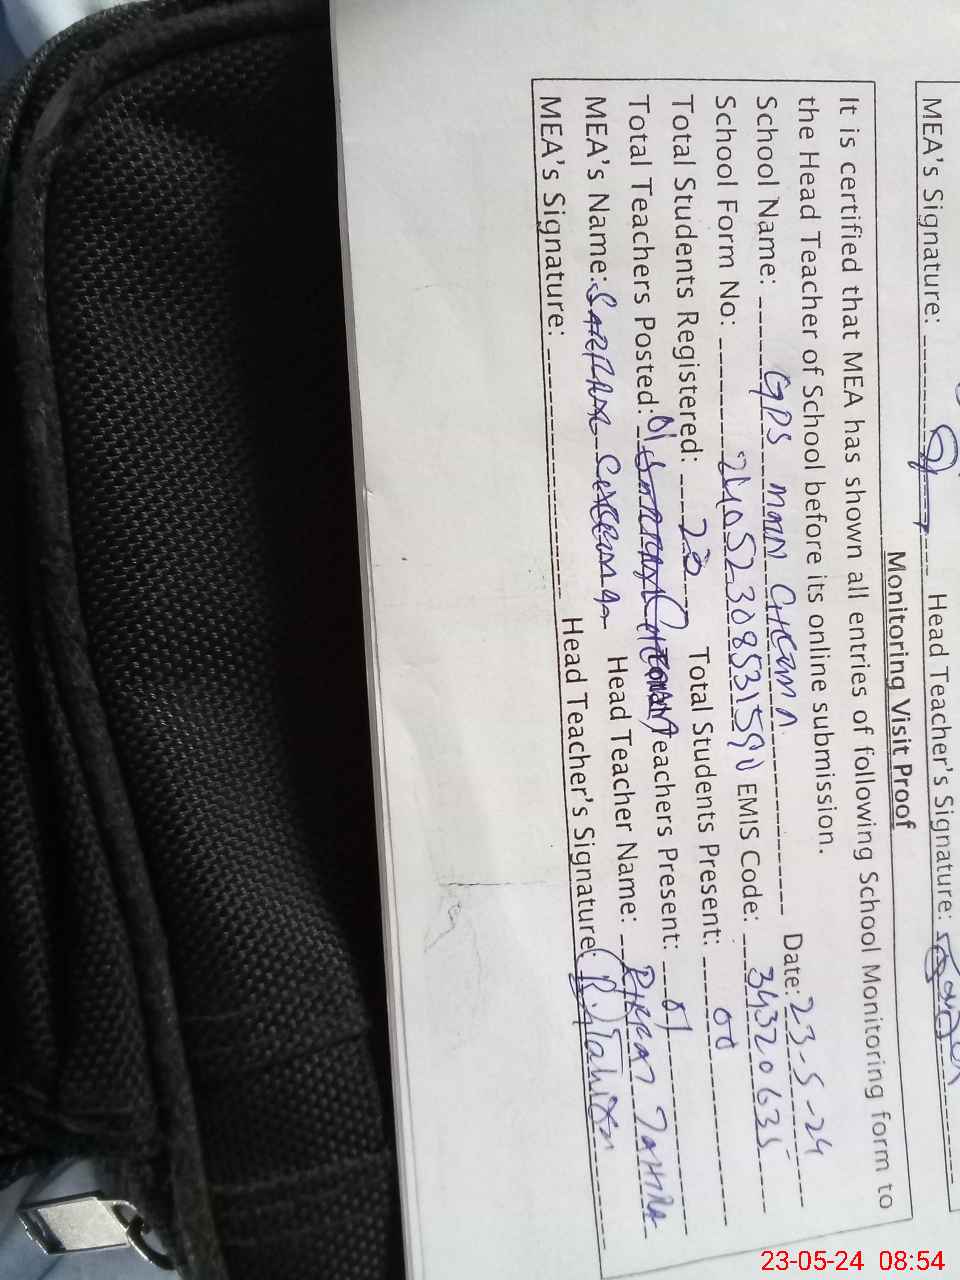 MEA's Signature: Head Teacher's Signature:
Monitoring Visit Proof
It is certified that MEA has shown all entries of following School Monitoring form to
the Head Teacher of School before its online submission.
School Name: GPS MAIN CHEEMA Date: 23-5-24
School Form No: EMIS Code: 34320635
Total Students Registered: 20 Total Students Present: 00
Total Teachers Posted: 01 Teachers Present: 01
MEA's Name: SARFRAZ Head Teacher Name: TAHIRA
MEA's Signature: Head Teacher's Signature:
23-05-24 08:54